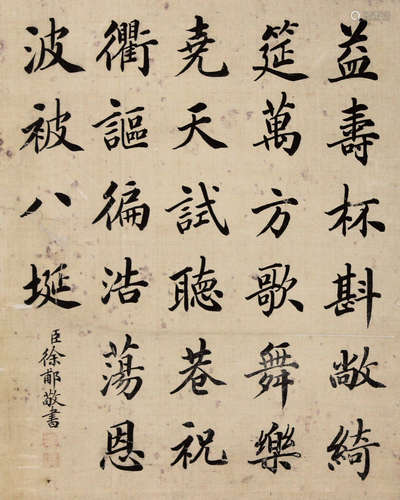 益壽杯斟敞綺
筵萬方歌舞樂
堯天試聽巷祝
衢謳徧浩蕩恩
波被八埏
臣徐郙敬書